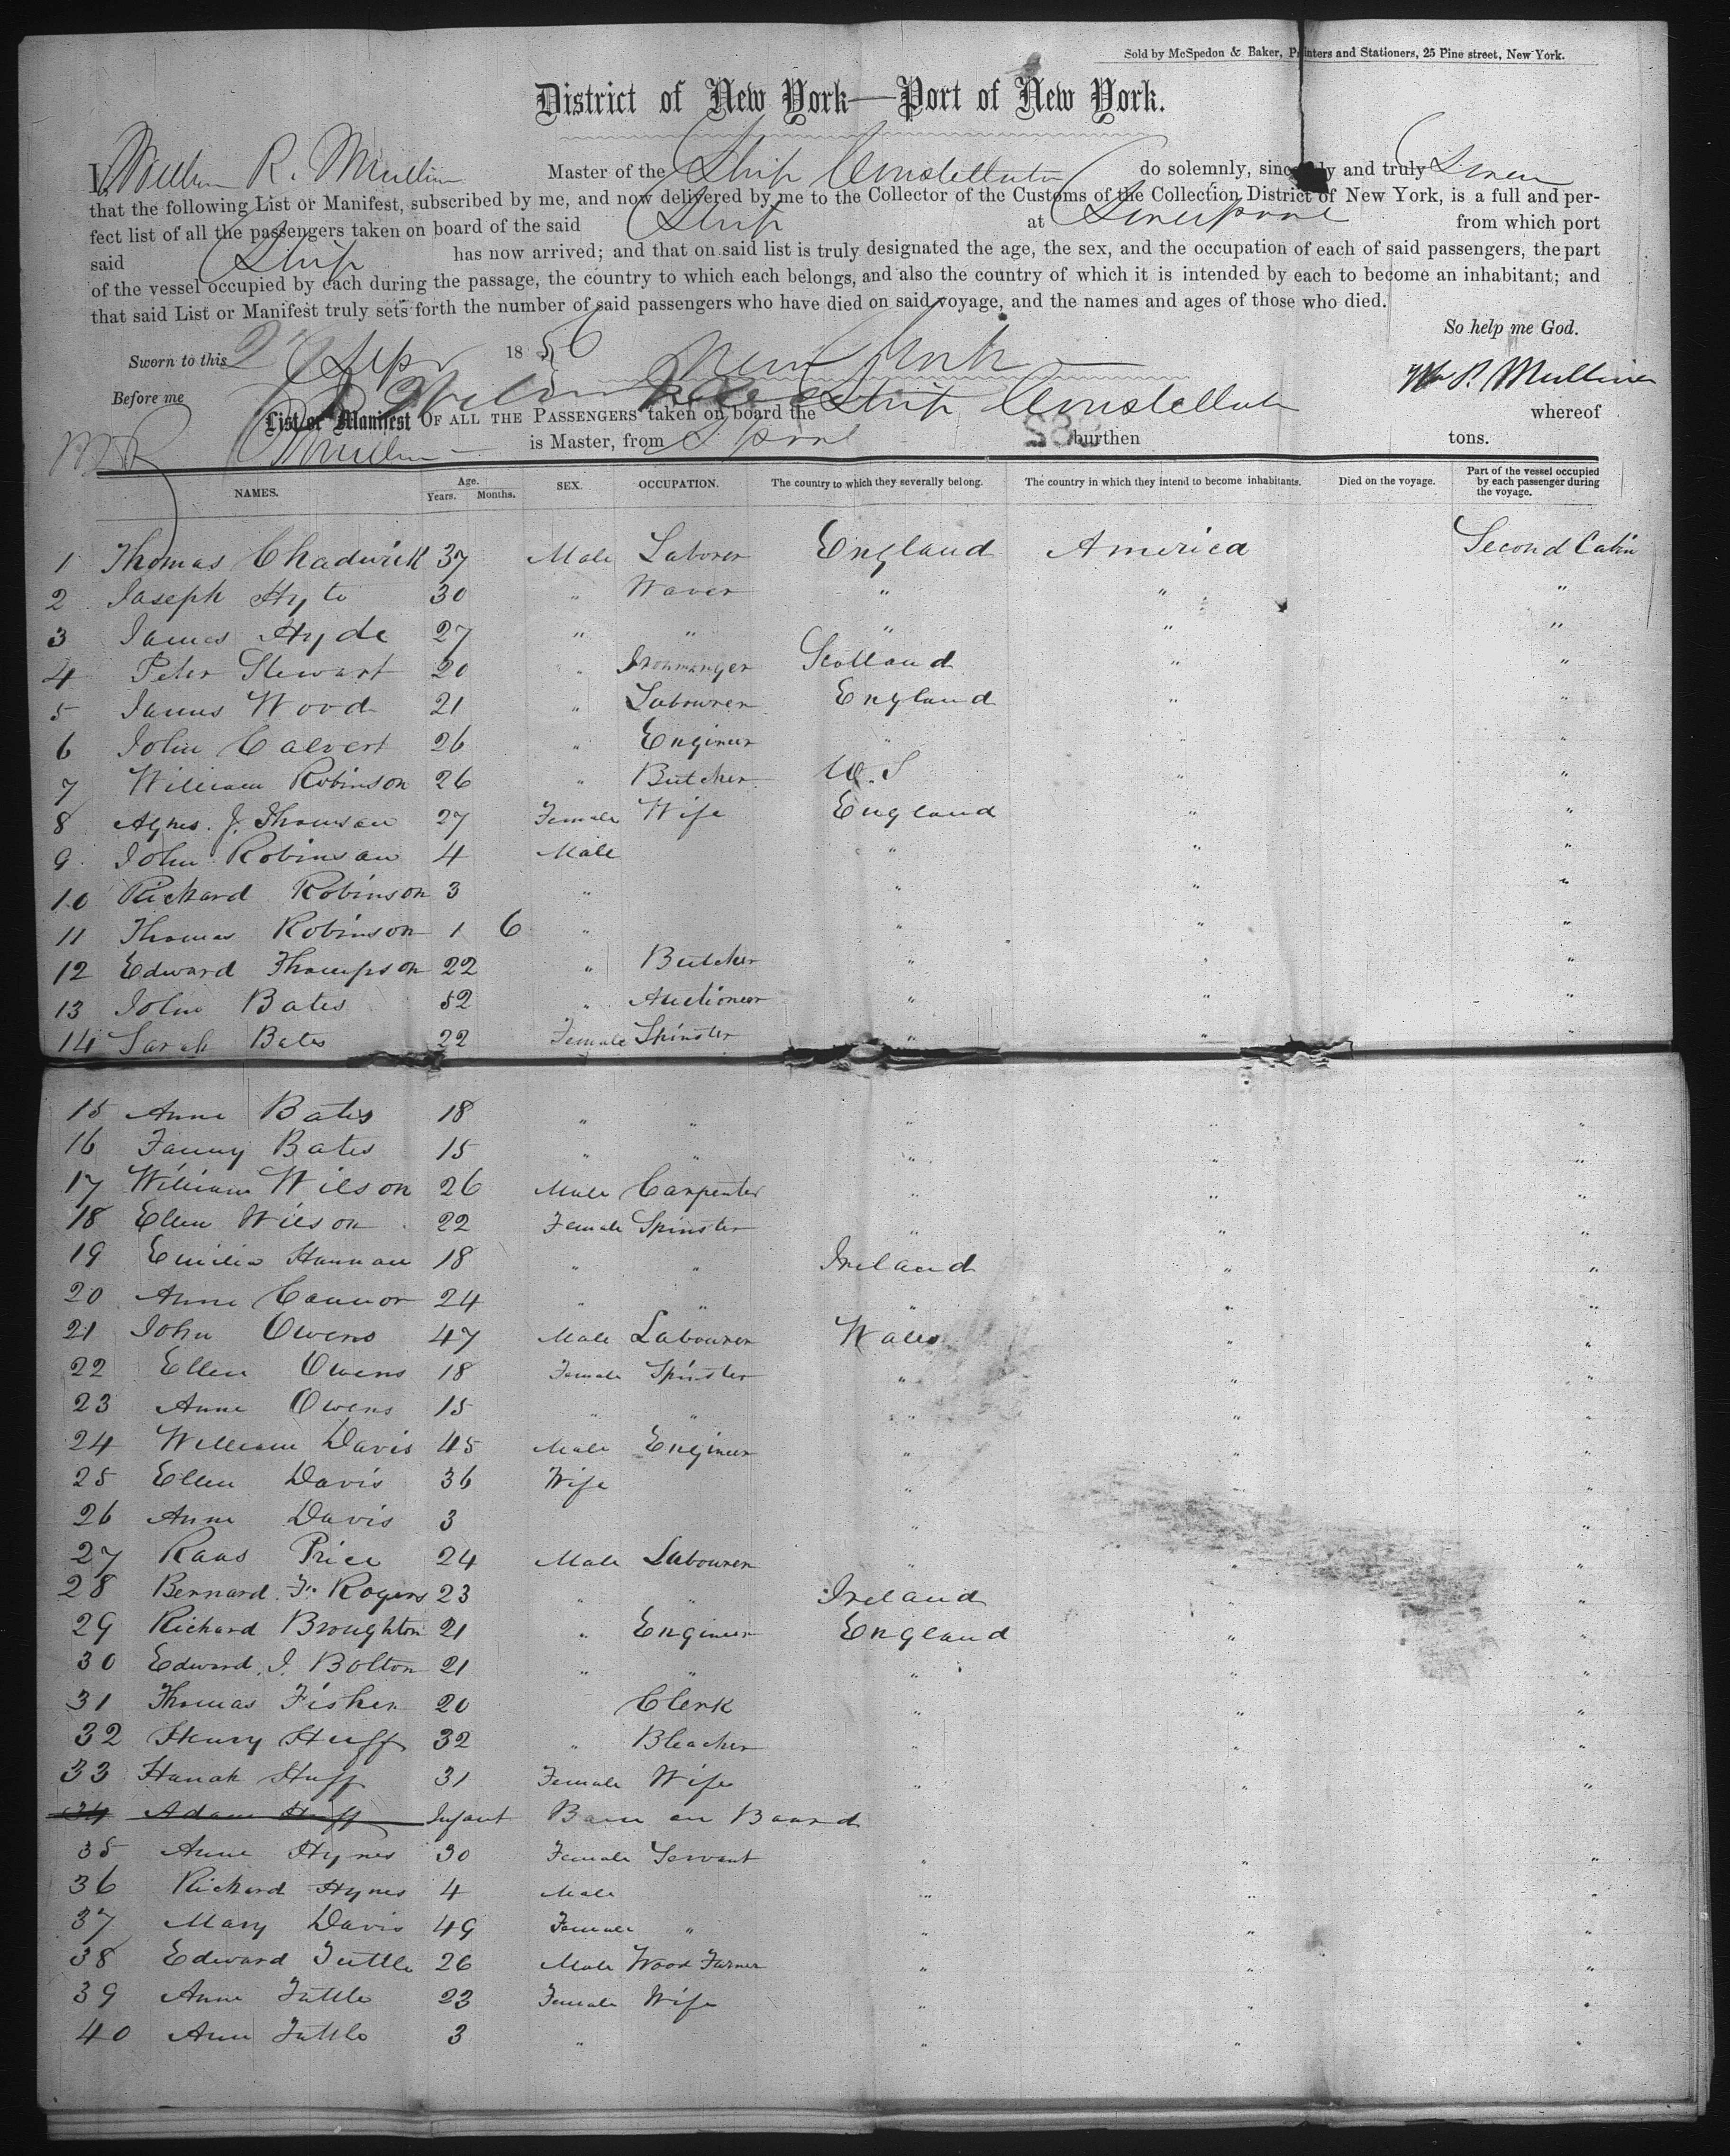 Sold by McSpedon & Baker, Printers and Stationers, 25 Pine street, New York.
District of New York—Port of New York.
I, William R. Mullin Master of the Ship Constellation do solemnly, sincerely and truly Swear
that the following List or Manifest, subscribed by me, and now delivered by me to the Collector of the Customs of the Collection District of New York, is a full and per-
fect list of all the passengers taken on board of the said Ship at Liverpool from which port
said Ship has now arrived; and that on said list is truly designated the age, the sex, and the occupation of each of said passengers, the part
of the vessel occupied by each during the passage, the country to which each belongs, and also the country of which it is intended by each to become an inhabitant; and
that said List or Manifest truly sets forth the number of said passengers who have died on said voyage, and the names and ages of those who died.
So help me God.
Sworn to this 2 Sepr 1856 New York
Before me Wm R. Mulliner
List or Manifest OF ALL THE PASSENGERS taken on board the Ship Constellation whereof
Mullin is Master, from L pool 882 burthen tons.
NAMES. Age. Years. Months. SEX. OCCUPATION. The country to which they severally belong. The country in which they intend to become inhabitants. Died on the voyage. Part of the vessel occupied by each passenger during the voyage.
1 Thomas Chadwick 37 Male Laborer England America Second Cabin
2 Jaseph Hyto 30 " Waver " " "
3 James Hyde 27 " " " " "
4 Peter Stewart 20 " Ironmanger Scotland " "
5 James Wood 21 " Labourer England " "
6 John Calvert 26 " Engineer " " "
7 William Robinson 26 " Butcher U.S " "
8 Agnes. J. Thomson 27 Female Wife England " "
9 John Robinson 4 Male " " "
10 Richard Robinson 3 " " " "
11 Thomas Robinson 1 6 " " " "
12 Edward Thompson 22 " Butcher " " "
13 John Bates 52 " Auctioneer " " "
14 Sarah Bates 22 Female Spinster " " "
15 Anne Bates 18 " " " " "
16 Fanny Bates 15 " " " " "
17 William Wilson 26 Male Carpenter " " "
18 Ellen Wilson 22 Female Spinster " " "
19 Emilia Hannan 18 " " Ireland " "
20 Anne Connor 24 " " " " "
21 John Owens 47 Male Labourer Wales " "
22 Ellen Owens 18 Female Spinster " " "
23 Anne Owens 15 " " " " "
24 William Davis 45 Male Engineer " " "
25 Ellen Davis 36 Wife " "
26 Anne Davis 3 " "
27 Raas Price 24 Male Labourer " " "
28 Bernard. F. Rogers 23 " " Ireland " "
29 Richard Broughton 21 " Engineer England " "
30 Edward. J. Bolton 21 " " " " "
31 Thomas Fisher 20 Clerk " " "
32 Henry Huff 32 " Bleacher " " "
33 Hanah Huff 31 Female Wife " " "
34 Adam Huff Infant Born on Board
35 Anne Hynes 30 Female Servant " " "
36 Richard Hynes 4 Male " " "
37 Mary Davis 49 Female " " " "
38 Edward Tuttle 26 Male Wood Turner " " "
39 Anne Tuttle 23 Female Wife " " "
40 Ann Tuttle 3 " " " "